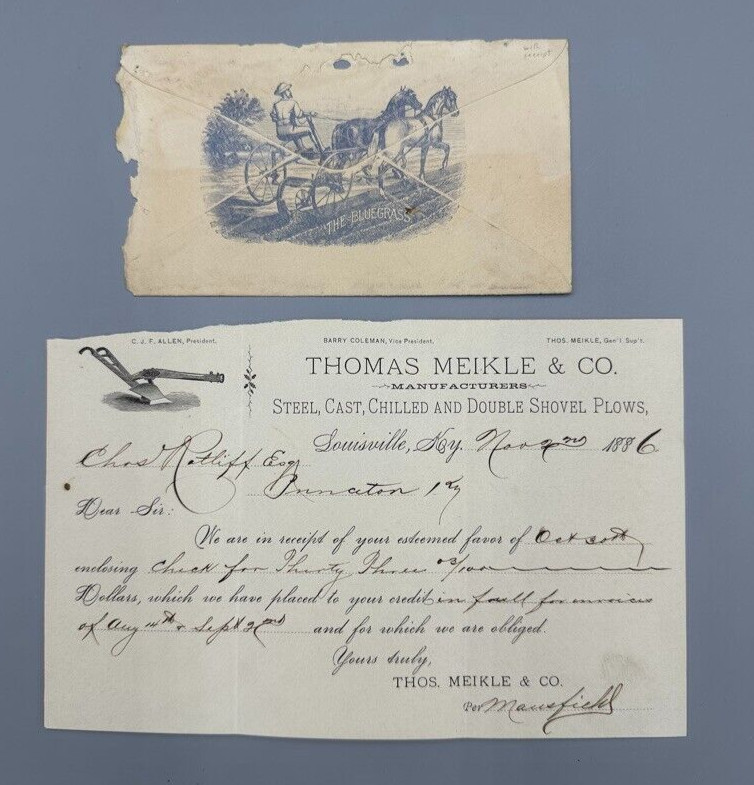 with
receipt
THE BLUEGRASS
C. J. F. ALLEN, President.
BARRY COLEMAN, Vice President.
THOS. MEIKLE, Gen'l Sup't.
THOMAS MEIKLE & CO.
MANUFACTURERS
STEEL, CAST, CHILLED AND DOUBLE SHOVEL PLOWS,
Louisville, Ky. Nov 2nd 1886
Chas Ratliff Esq
Princeton Ky
Dear Sir:
We are in receipt of your esteemed favor of Oct 30th
enclosing Check for Thirty Three /100
Dollars, which we have placed to your credit in full for invoices
of Aug 14th & Sept 2nd and for which we are obliged.
Yours truly,
THOS. MEIKLE & CO.
Per Mansfield